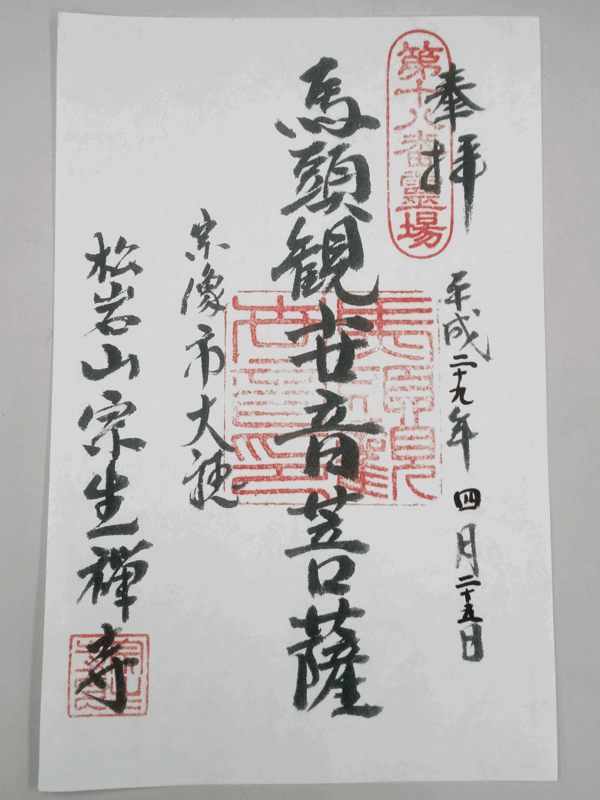 第十八番霊場
奉拝
平成二十九年四月二十五日
馬頭観世音菩薩
宗像市大穂
松岩山宗生禅寺